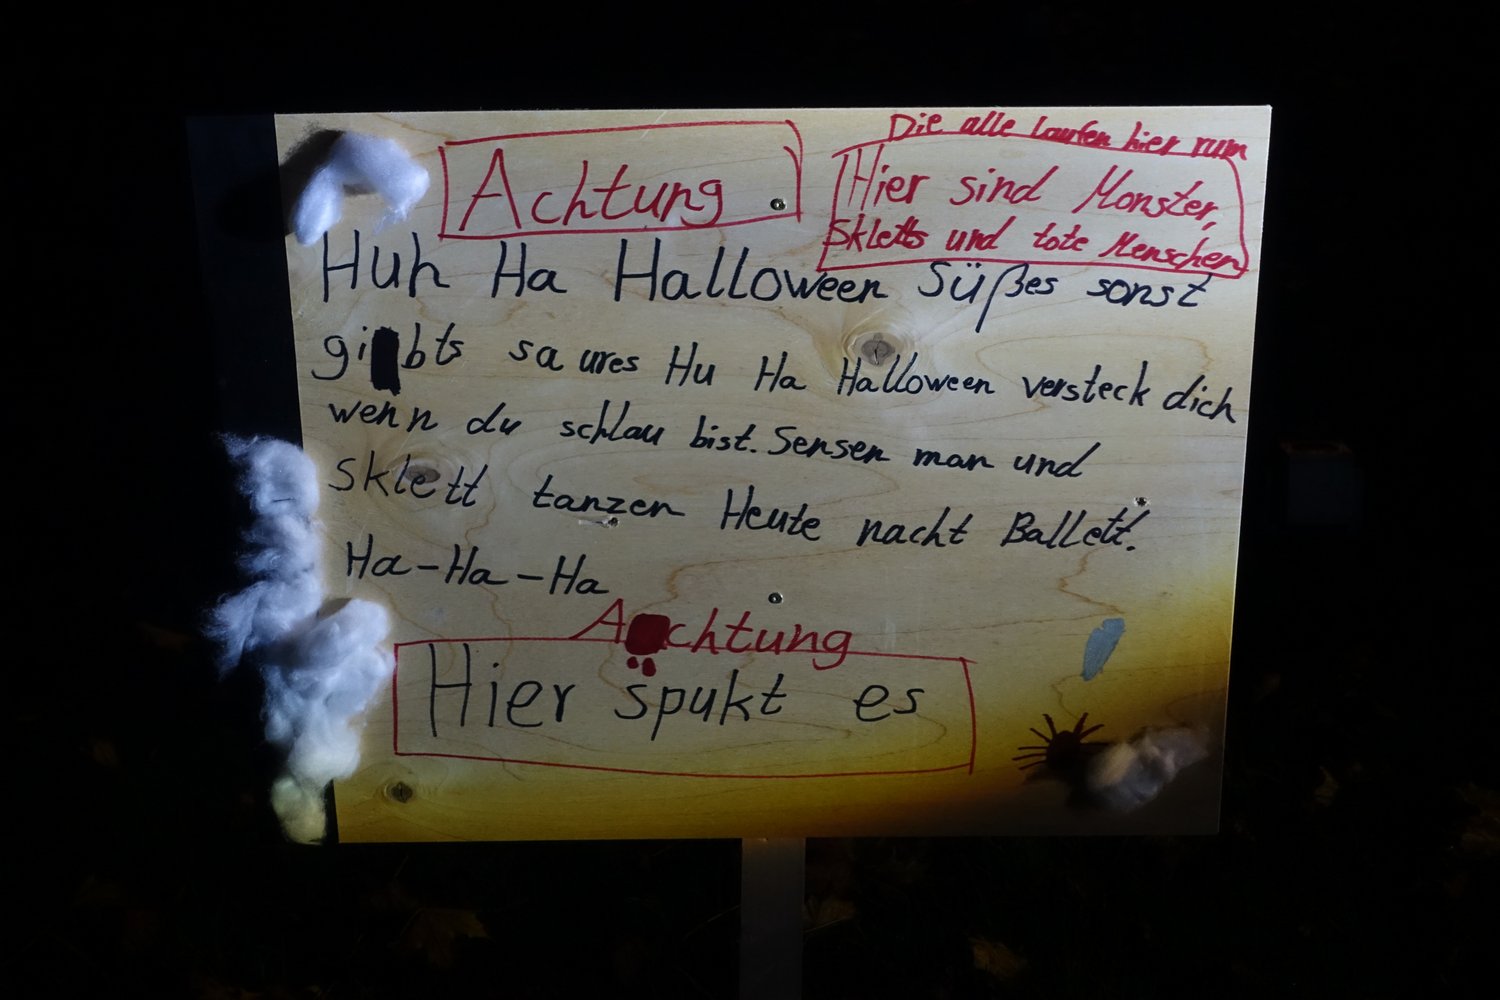 Achtung.
Die alle laufen hier rum
Hier sind Monster,
Skletts und tote Menschen
Huh Ha Halloween Süßes sonst
gibts saures Hu Ha Halloween versteck dich
wenn du schlau bist. Sensen man und
Sklett tanzen Heute nacht Ballett.
Ha-Ha-Ha
Achtung
Hier spukt es